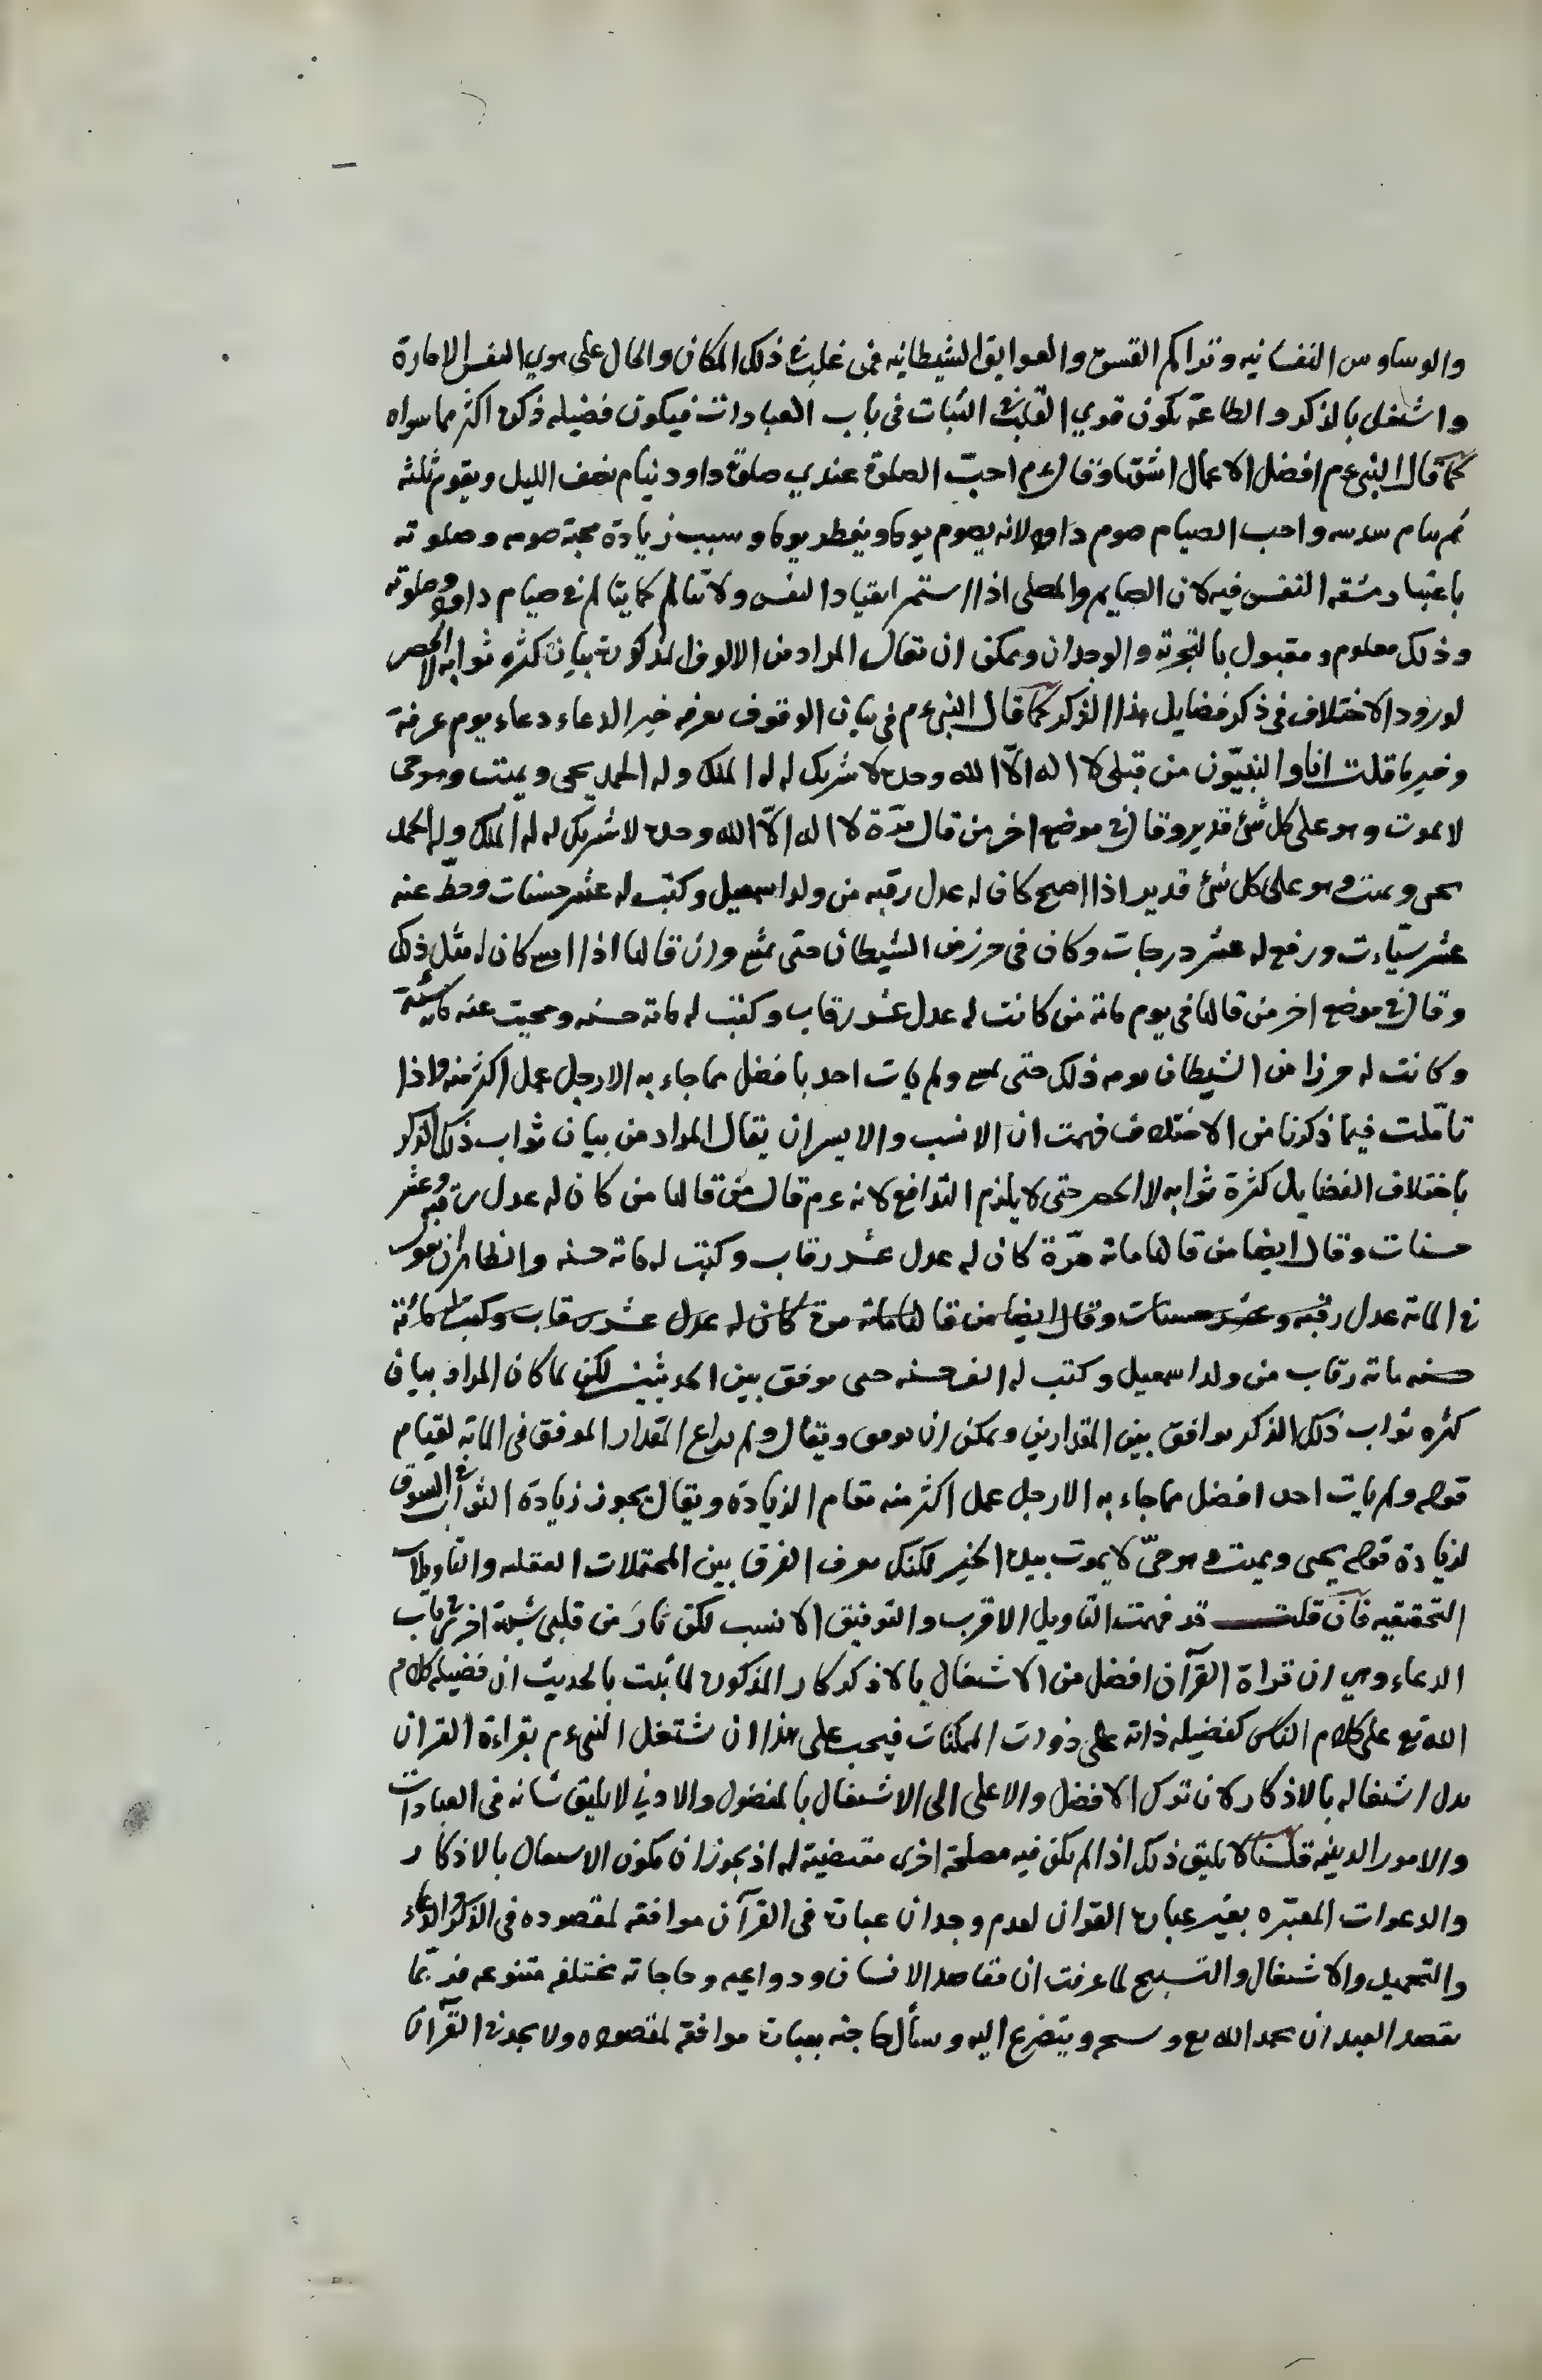 والوساوس النفسانيه وتراكم القسوة والعوايق الشيطانيه فمن غلب في ذلك المكان والحال على هوي النفس الامارة
واشتغل بالذكر والطاعة يكون قوي القلب في الثبات في باب العبادات فيكون فضيله ذكره اكثر مما سواه
كما قال النبي عم افضل الاعمال اشقها وقال عم احبّ الصلوة عندي صلوة داود ينام نصف الليل ويقوم ثلثه
ثم ينام سدسه واحب الصيام صوم داود لانه يصوم يوما ويفطر يوما وسبب زيادة محبة صومه وصلوته
باعتبار مشقه النفس فيه لان الصايم والمصلى اذا استمر ينقاد النفس ولا يتالم كما يتالم في صيام داود وصلوته
وذلك معلوم ومقبول بالتجربة والوجدان ويمكن ان يقال المراد من الالوف المذكورة بيان كثره ثوابه لا الحصر
لورود الاختلاف في ذكر فضايل هذا الذكر كما قال النبي عم في بيان الوقوف بعرفه خير الدعاء دعاء يوم عرفة
وخير ما قلت انا والنبيّون من قبلى لا اله الّا الله وحده لا شريك له له الملك وله الحمد يحيى ويميت وهو حى
لا يموت وهو على كل شئ قدير وقال في موضع اخر من قال مرّة لا اله الّا الله وحده لا شريك له له الملك وله الحمد
يحيى ويميت وهو على كل شئ قدير اذا اصبح كان له عدل رقبه من ولد اسمعيل وكتب له عشر حسنات وحطّ عنه
عشر سيّاءت ورفع له عشر درجات وكان في حرز من الشيطان حتى يمسي وان قالها اذا امسى كان له مثل ذلك
وقال في موضع اخر من قالها في يوم مائة من كانت له عدل عشر رقاب وكتب له مائة حسنه ومحيت عنه مائة سيئة
وكانت له حرزا من الشيطان يومه ذلك حتى يمسى ولم يات احد بافضل مما جاء به الا رجل عمل اكثر منه واذا
تامّلت فيما ذكرنا من الاختلاف فهمت ان الانسب والايسر ان يقال المراد من بيان ثواب ذلك الذكر
باختلاف الفضايل كثرة ثوابه لا الحصر حتى لا يلزم التدافع لانه عم قال من قالها من كان له عدل رقبه وعشر
حسنات وقال ايضا من قالها مائة مرّة كان له عدل عشر رقاب وكتبت له مائة حسنه والظاهر ان يقول
في المائة عدل رقبه وعشر حسنات وقال ايضا من قالها مائة مرة كان له عدل عشر رقاب وكتب له مائة
حسنه مائة رقاب من ولد اسمعيل وكتب له الف حسنه حتى يوفق بين الحديثين لكن لما كان المراد بيان
كثره ثواب ذلك الذكر يوافق بين المقدارين ويمكن ان يوفق ويقال ولم يراع المقدار الموفق في المائه لقيام
قوله ولم يات احد افضل مما جاء به الا رجل عمل اكثر منه مقام الزيادة ويقال يجوز زيادة الثواب في السوق
لزيادة قوله يحيى ويميت وهو حيّ لا يموت بيده الخير لكنك تعرف الفرق بين المحتملات العقليه والتاويلات
التحقيقيه فان قلت قد فهمت التاويل الاقرب والتوفيق الانسب لكن ثار من قلبى شبهة اخر في باب
الدعاء وهي ان قراة القرآن افضل من الاشتغال بالاذكار المذكورة لما ثبت بالحديث ان فضيله كلام
الله تع على كلام الناس كفضيله ذاته على ذوات الممكنات فيجب على هذا ان يشتغل النبي عم بقراءة القران
بدل اشتغاله بالاذكار لان ترك الافضل والاعلى الى الاشتغال بالمفضول والادني لا يليق شانه في العبادات
والامور الدينيه قلنا لا يليق ذلك اذا لم يكن فيه مصلحة اخرى مقتضية له اذ يجوز ان يكون الاستعمال بالاذكار
والدعوات المعتبره بغير عبارة القران لعدم وجدان عبارة في القرآن موافقه لمقصوده في الذكر والدعاء
والتحميد والاشتغال والتسبيح لما عرفت ان مقاصد الانسان ودواعيه وحاجاته مختلفه متنوعه فربّما
يقصد العبد ان يحمد الله تع ويسبحه ويتضرع اليه ويسأل حاجته بعبارة موافقه لمقصوده ولا يجد في القرآن